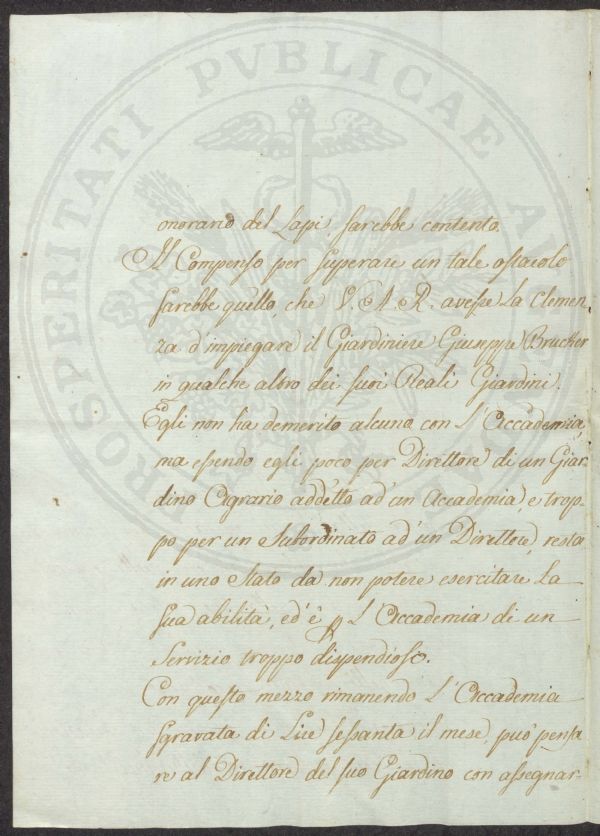 PROSPERITATI PVBLICAE AVGENDAE
onorario del Lapi sarebbe contento.
Il Compenso per superare un tale ostacolo
sarebbe quello, che V. A. R. avesse la Clemen-
za d'impiegare il Giardiniere Giuseppe Brucker
in qualche altro dei suoi Reali Giardini.
Egli non ha demerito alcuno con l'Accademia,
ma essendo egli poco per Direttore di un Giar-
dino Agrario addetto ad'un Accademia, e trop-
po per un Subordinato ad'un Direttore, resta
in uno Stato da non potere esercitare la
sua abilità, ed'è p l'Accademia di un
Servizio troppo dispendioso.
Con questo mezzo rimanendo l'Accademia
sgravata di Lire sessanta il mese, può pensa
re al Direttore del suo Giardino con assegnar-